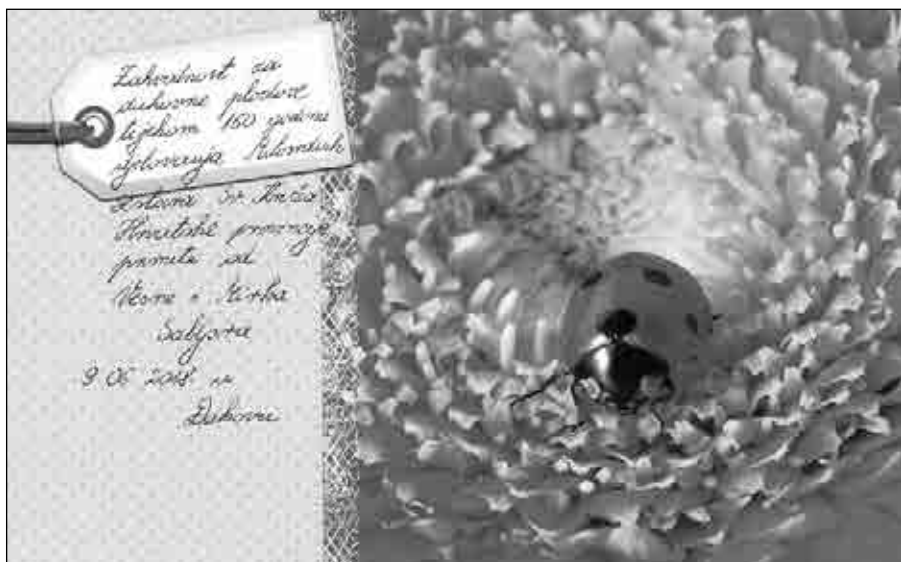 Zahvalnost za
duhovne plodove
tijekom 150 godina
djelovanja Milosrdnih
sestara sv. Križa
Hrvatske provincije
od
Vesne i Mirka
9. 06. 2018. u
Đakovu